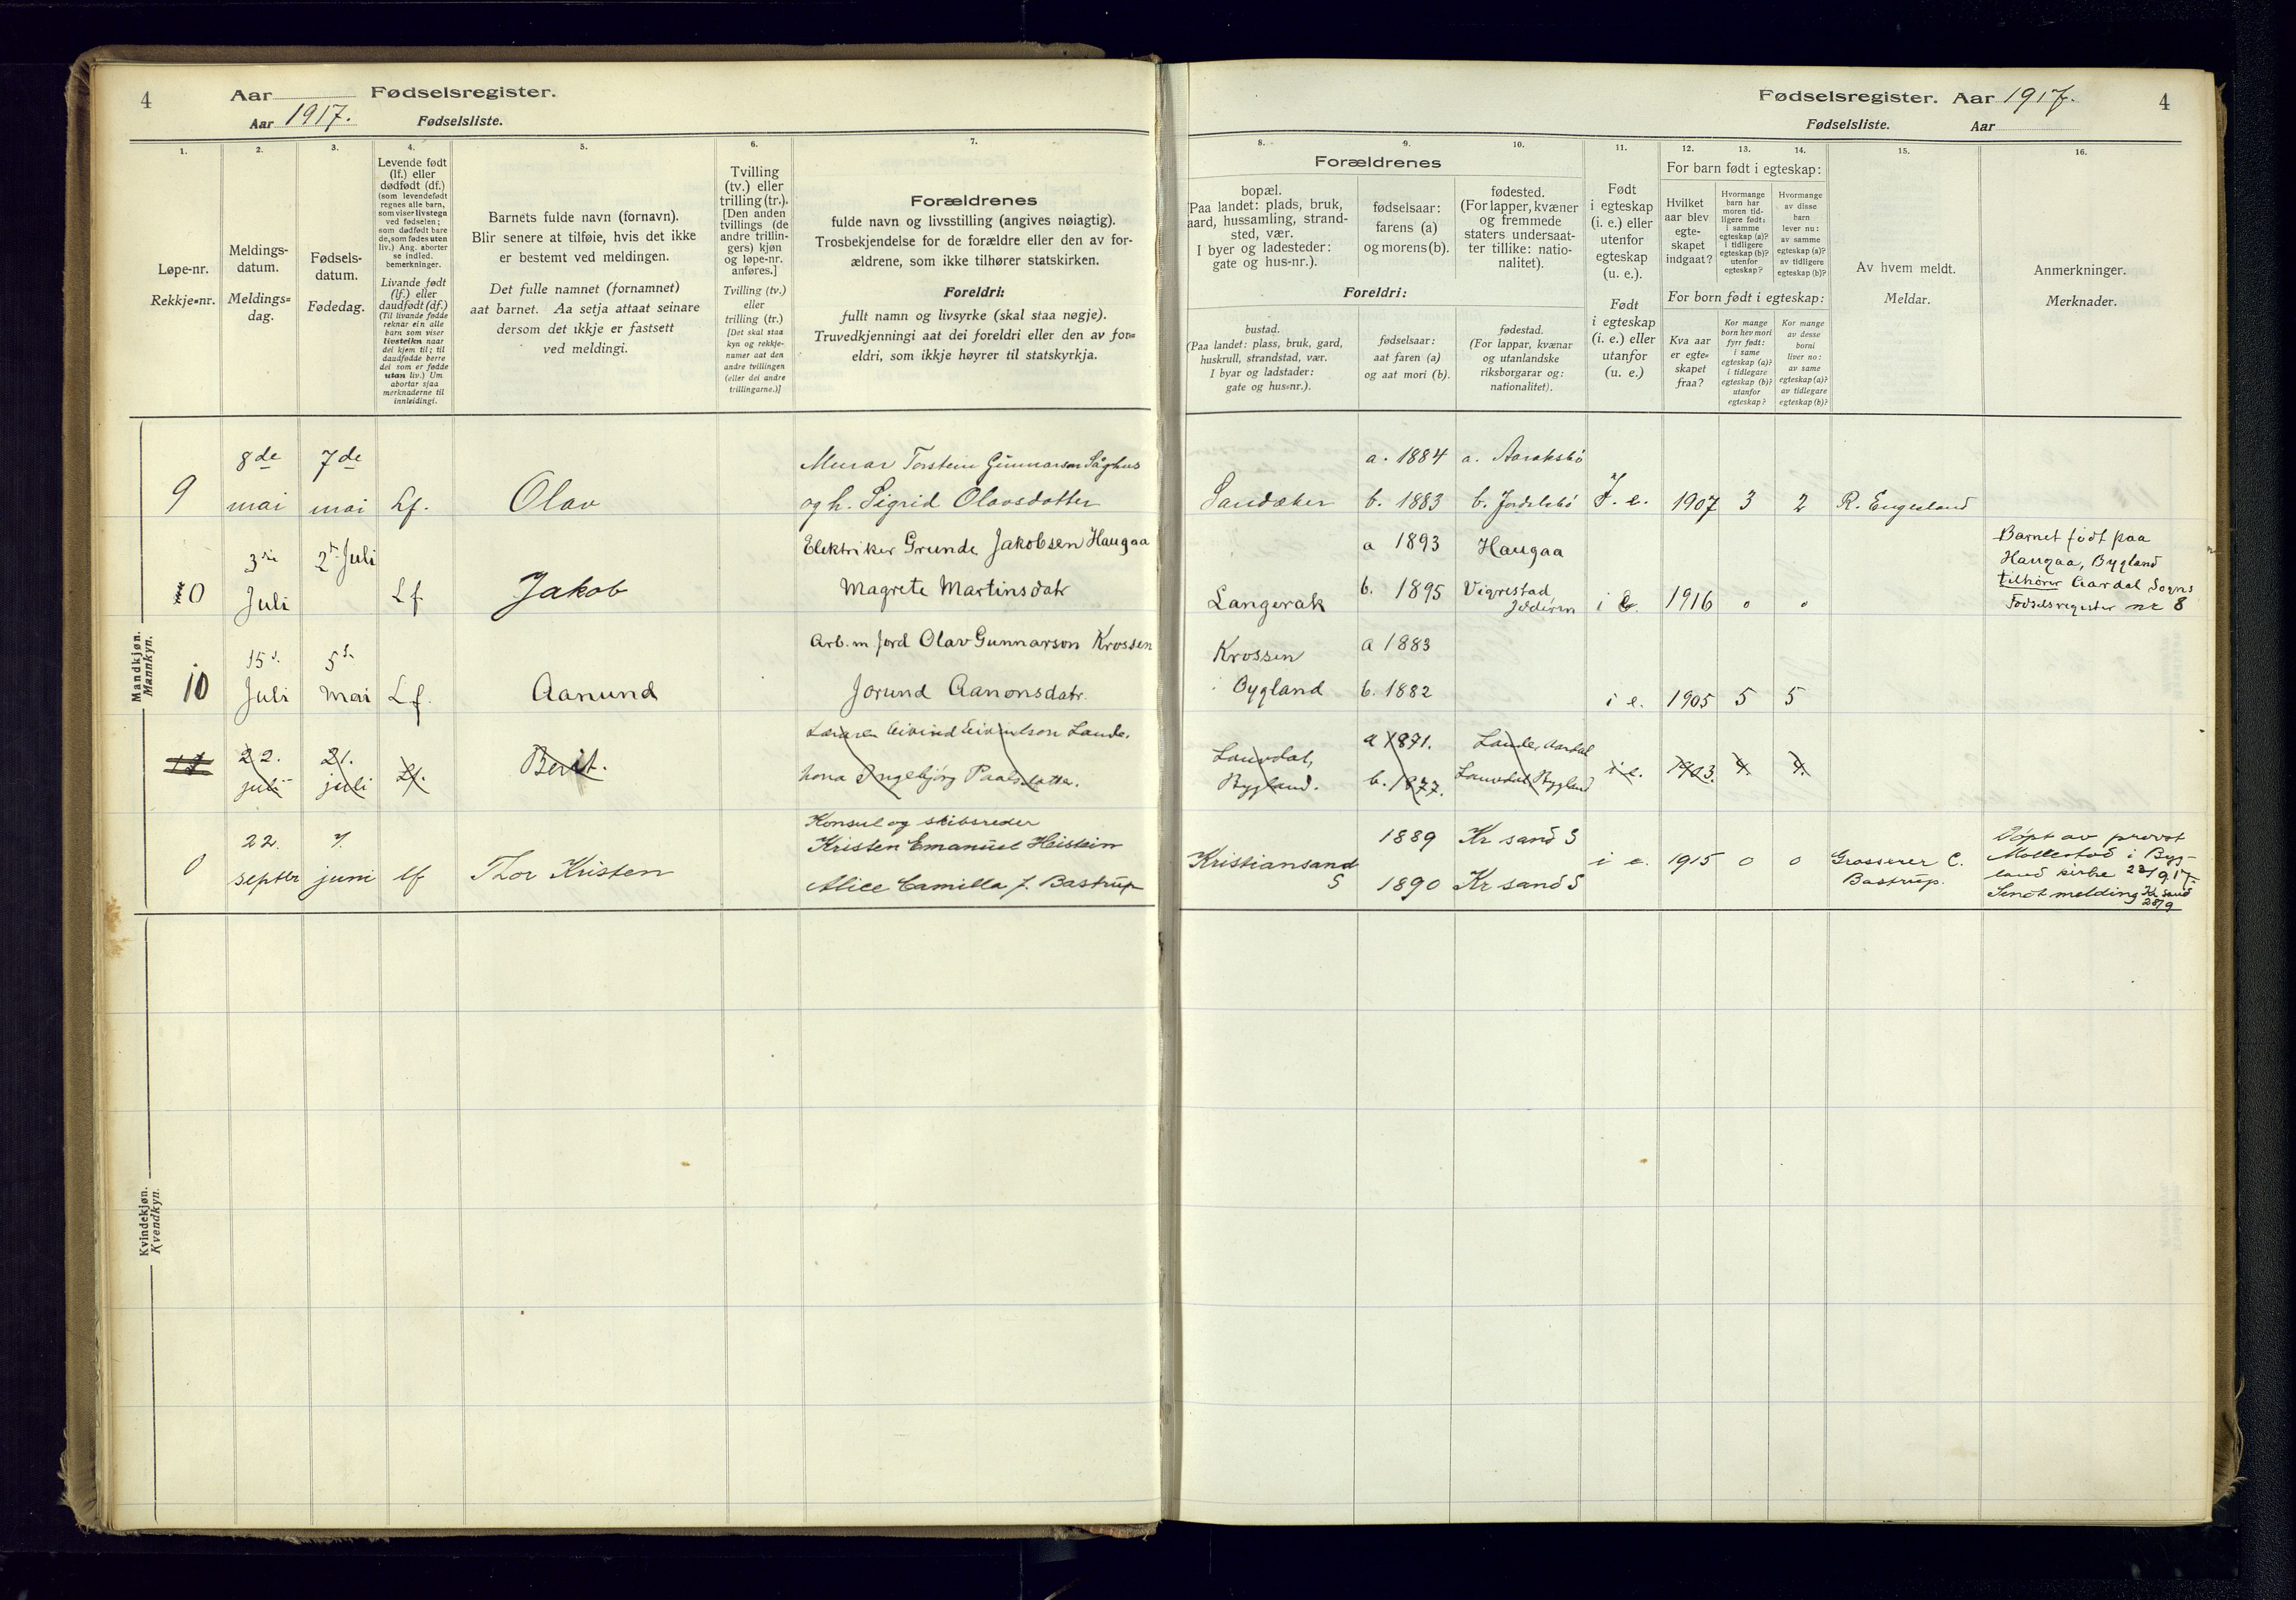 4
Aar Fødselsregister.
Aar 1917. Fødselsliste.
Fødselsregister. Aar 1917. 4
Fødselsliste. Aar
1. 2. 3. 4. 5. 6. 7.
Løpe-nr.
Rekkje-nr.
Meldings-
datum.
Meldings-
dag.
Fødsels-
datum.
Fødedag.
Levende født
(lf.) eller
dødfødt (df.)
(som levendefødt
regnes alle barn,
som viser livstegn
ved fødselen;
som dødfødt bare
de, som fødes uten
liv.) Ang. aborter
se indled.
bemerkninger.
Livande født
(lf.) eller
daudfødt (df.)
(Til livande fødde
reknar ein alle
barn som viser
livsteikn naar
dei kjem til; til
daudfødde berre
dei som er fødde
utan liv.) Um
abortar sjaa
merknaderne til
innleidingi.
Barnets fulde navn (fornavn).
Blir senere at tilføie, hvis det ikke
er bestemt ved meldingen.
Det fulle namnet (fornamnet)
aat barnet. Aa setja attaat seinare
dersom det ikkje er fastsett
ved meldingi.
Tvilling
(tv.) eller
trilling (tr.).
[Den anden
tvillings (de
andre trillin-
gers) kjøn
og løpe-nr.
anføres.]
Tvilling (tv.)
eller
trilling (tr.)
[Det skal staa
kyn og rekkje-
numer aat den
andre tvillingen
(eller dei andre
trillingarne.)]
Forældrenes
fulde navn og livsstilling (angives nøiagtig).
Trosbekjendelse for de forældre eller den av for-
ældrene, som ikke tilhører statskirken.
Foreldri:
fullt namn og livsyrke (skal staa nøgje).
Truvedkjenningi aat dei foreldri eller den av for-
eldri, som ikkje høyrer til statskyrkja.
8. 9. 10. 11. 12. 13. 14. 15. 16.
Forældrenes
bopæl.
Paa landet: plads, bruk,
aard, hussamling, strand-
sted, vær.
I byer og ladesteder:
gate og hus-nr.).
fødselsaar:
farens (a)
og morens (b).
fødested.
(For lapper, kvæner
og fremmede
staters undersaat-
ter tillike: natio-
nalitet).
Foreldri:
bustad.
(Paa landet: plass, bruk, gard,
huskrull, strandstad, vær.
I byar og ladstader:
gate og hus-nr.).
fødselsaar:
aat faren (a)
og aat mori (b).
fødestad.
(For lappar, kvænar
og utanlandske
riksborgarar og:
nationalitet).
Født
i egteskap
(i. e.) eller
utenfor
egteskap
(u. e.).
Født
i egteskap
(i. e.) eller
utanfor
(u. e.)
For barn født i egteskap:
Hvilket
aar blev
egte-
skapet
indgaat?
Hvormange
barn har
moren tid-
ligere født:
i samme
egteskap (a)?
i tidligere
egteskap (b)?
utenfor
egteskap?
Hvormange
av disse
barn
lever nu:
av samme
egteskap (a)?
av tidligere
egteskap (b)?
For born født i egteskap:
Kva aar
er egte-
skapet
fraa?
Kor mange
born hev mori
fyrr født:
i same
egteskap (a)?
i tidlegare
egteskap (b)?
utanfor
egteskap?
Kor mange
av desse
borni
liver no:
av same
egteskap (a)?
av tidlegare
egteskap (b)?
Av hvem meldt.
Meldar.
Anmerkninger.
Merknader.
Mandkjøn.
Mannkyn.
9 8de mai 7de mai Lf. Olav
Murar Torstein Gunnarson Såghus
og h. Sigrid Olavsdotter
Sandaker a. 1884 a. Aaraksbø
b. 1883 b. Jordalsbø I. e. 1907 3 2 R. Engesland
10 3di Juli 2 Juli Lf Jakob
Elektriker Grunde Jakobsen Haugaa
Magrete Martinsdatr
Langerak a 1893 Haugaa
b. 1895 Vigrestad
Jedderen i e. 1916 0 0
Barnet født paa
Haugaa, Bygland
tilhører Aardal Sogns
Fødselsregister nr 8
10 15 Juli 5 Mai Lf. Aanund
Arb. m Jord Olav Gunnarson Krossen
Jorund Aanonsdatr.
Krossen a 1883
Bygland b. 1882 i e. 1905 5 5
11 22. juli 21. juli Lf. Berit.
Læraren Eivind Eivindson Lande.
kona Ingebjørg Paalsdotter.
Lauvdal, a 1871. Lande, Aardal
Bygland. b. 1877. Lauvdal, Bygland i e. 1903. 4. 4.
0 22. septbr 7. juni lf Thor Kristen
Konsul og skibsreder
Kristen Emanuel Heistein
Alice Camilla f. Bastrup
Kristiansand S 1889 Kr sand S
1890 Kr sand S i e. 1915 0 0 Grosserer C.
Bastrup.
Døpt av provst
Mollestad i Byg-
land kirke 23/9.17.
Sendt melding Kr sand
28/9
Kvindekjøn.
Kvendkyn.